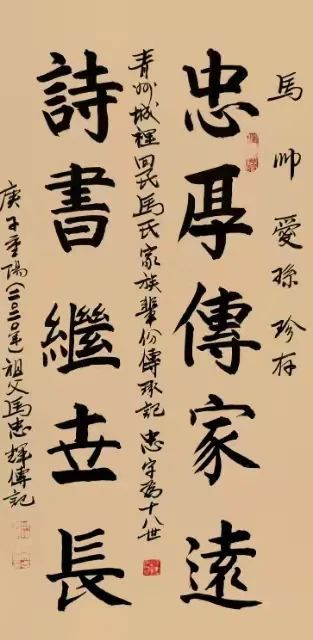 馬帅愛孫珍存
忠厚傳家遠
青州城裡回民馬氏家族輩份傳承記 忠字為十八世
詩書繼世長
庚子重陽(二〇二〇年)祖父馬忠輝傳記